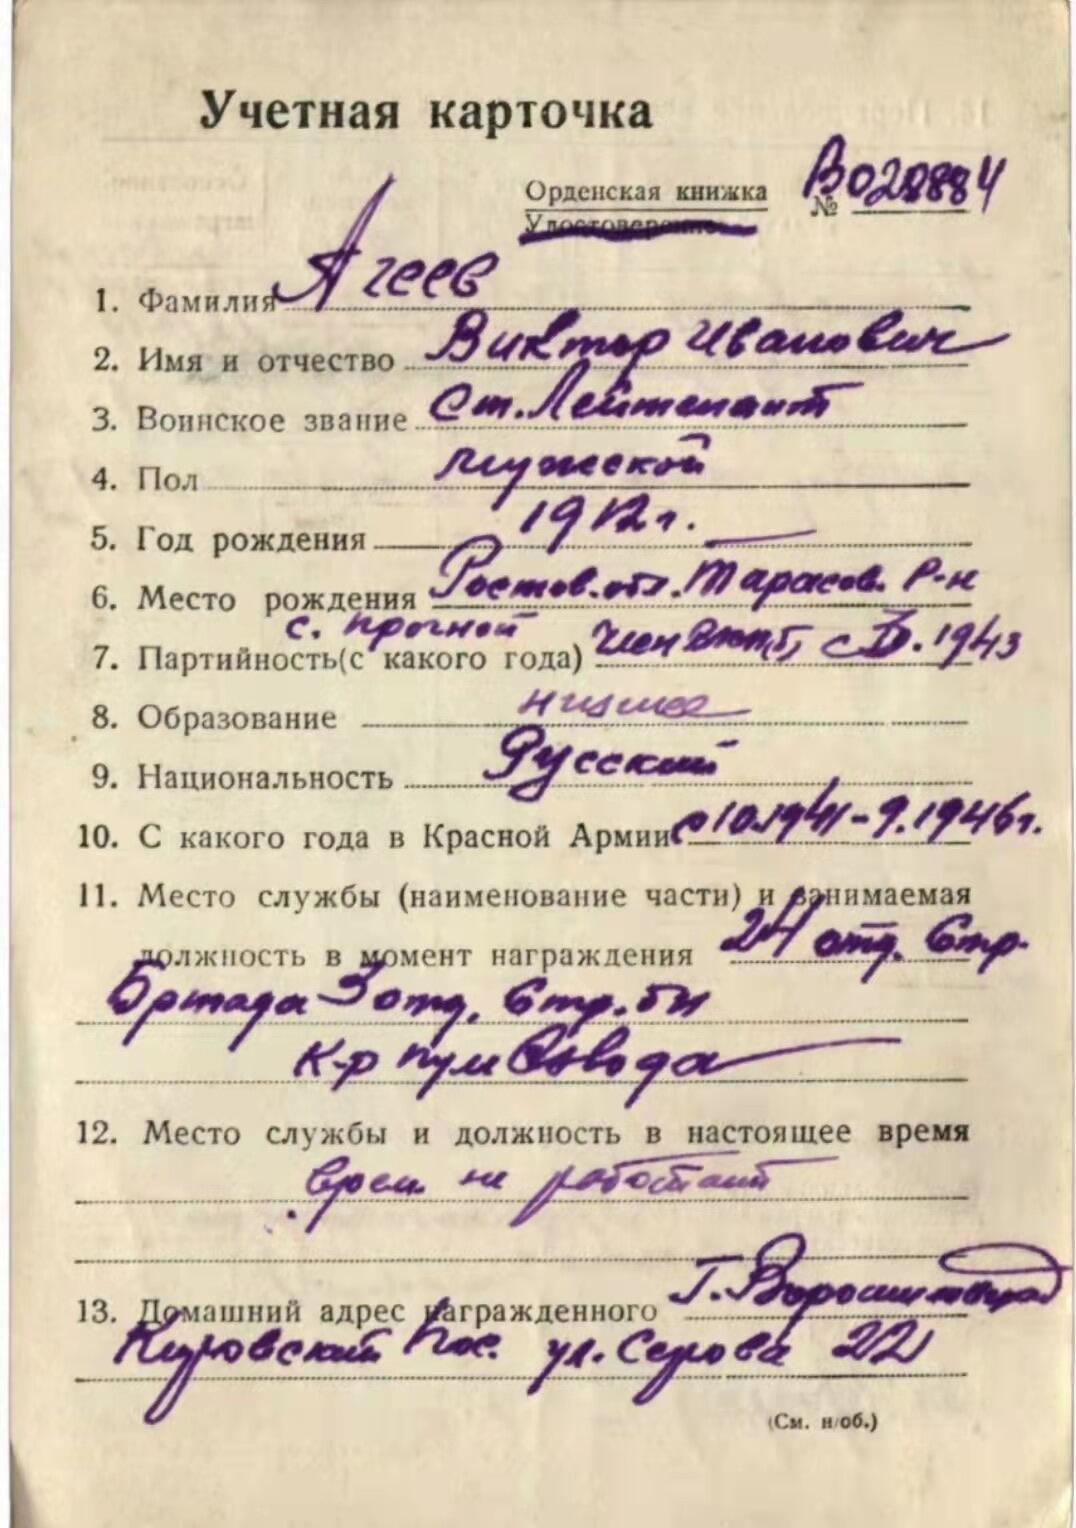 Учетная карточка
Орденская книжка № В028884
Удостоверение
1. Фамилия Агеев
2. Имя и отчество Виктор Иванович
3. Воинское звание Ст. Лейтенант
4. Пол мужской
5. Год рождения 1912 г.
6. Место рождения Ростов. обл. Тарасов. р-н
с. Прогной
7. Партийность (с какого года) член ВКП(б) с 1943
8. Образование низшее
9. Национальность Русский
10. С какого года в Красной Армии с 10.1941 - 9.1946 г.
11. Место службы (наименование части) и занимаемая
должность в момент награждения 24 отд. Стр.
Бригада 3 отд. Стр. бн
к-р пулвзвода
12. Место службы и должность в настоящее время
врем. не работает
13. Домашний адрес награжденного Г. Ворошиловград
Кировский пос. ул. Серова 22
(См. н/об.)